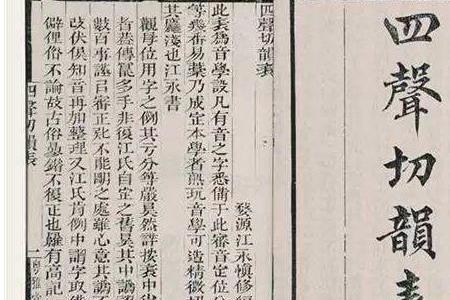 四聲切韻表
四聲切韻表
婺源江永慎修編
此表爲音學設凡有音之字悉備于此審音定位分
等幾番易藁乃成定本學者熟玩音學可造精微切
其麤淺也江永書
觀母位用字之例其分等嚴具然詳按表中
者蓋傳寫多手非復江氏自定之舊其中譌
數百事謹正不能剛之處雖心意其譌不
知音再加整理又江氏凡例中謂字取
僻俚俗不論故古俗不復正也雖有高記
四聲切韻表
一
粤雅